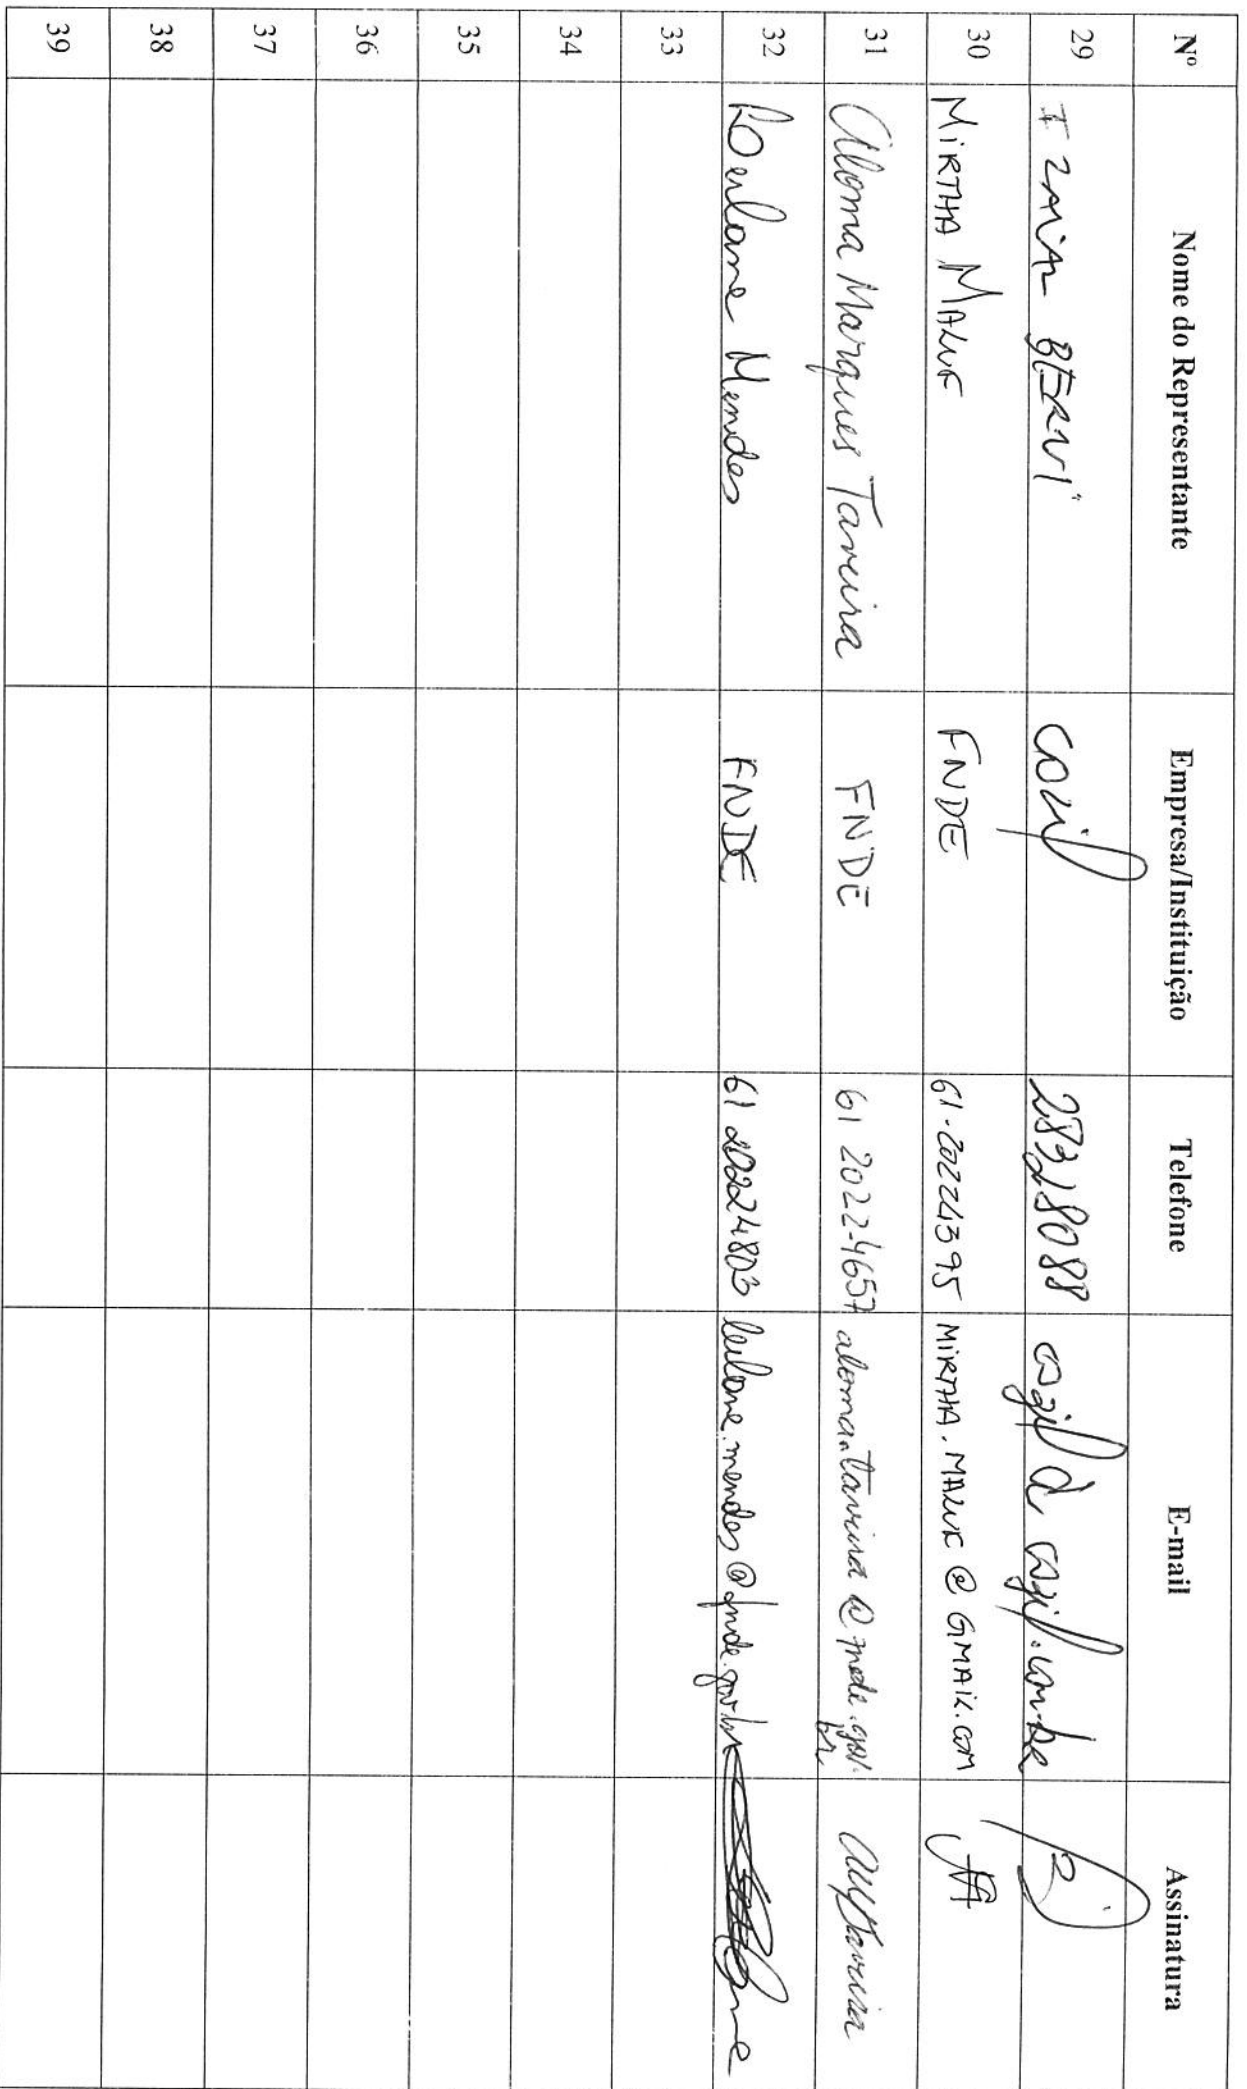 Nº Nome do Representante Empresa/Instituição Telefone E-mail Assinatura
29 IZAIAR BERNI COZIL 28318088 cozil@cozil.com.br
30 MIRTHA MALUF FNDE 61-20224395 MIRTHA.MALUF@GMAIL.COM
31 Aloma Marques Taveira FNDE 61 2022-4657 aloma.taveira@fnde.gov.br AMTaveira
32 Leilane Mendes FNDE 61 20224803 leilane.mendes@fnde.gov.br
33
34
35
36
37
38
39